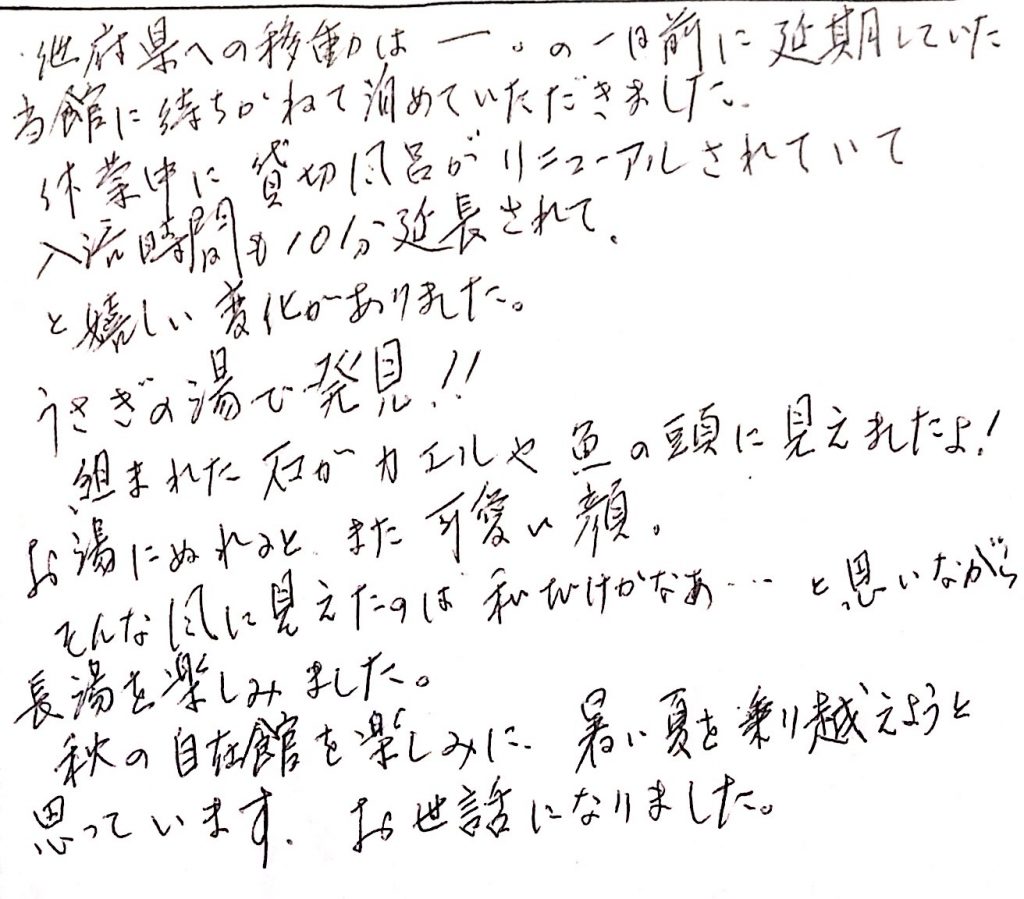 他府県への移動は一。の一日前に延期していた
当館に待ちかねて泊めていただきました。
休業中に貸切風呂がリニューアルされていて
入浴時間も10分延長されて、
と嬉しい変化がありました。
うさぎの湯で発見!!
組まれた石がカエルや魚の頭に見えましたよ!
お湯にぬれると、また可愛い顔。
そんな風に見えたのは私だけかなあ… と思いながら
長湯を楽しみました。
秋の自在館を楽しみに、暑い夏を乗り越えようと
思っています。お世話になりました。